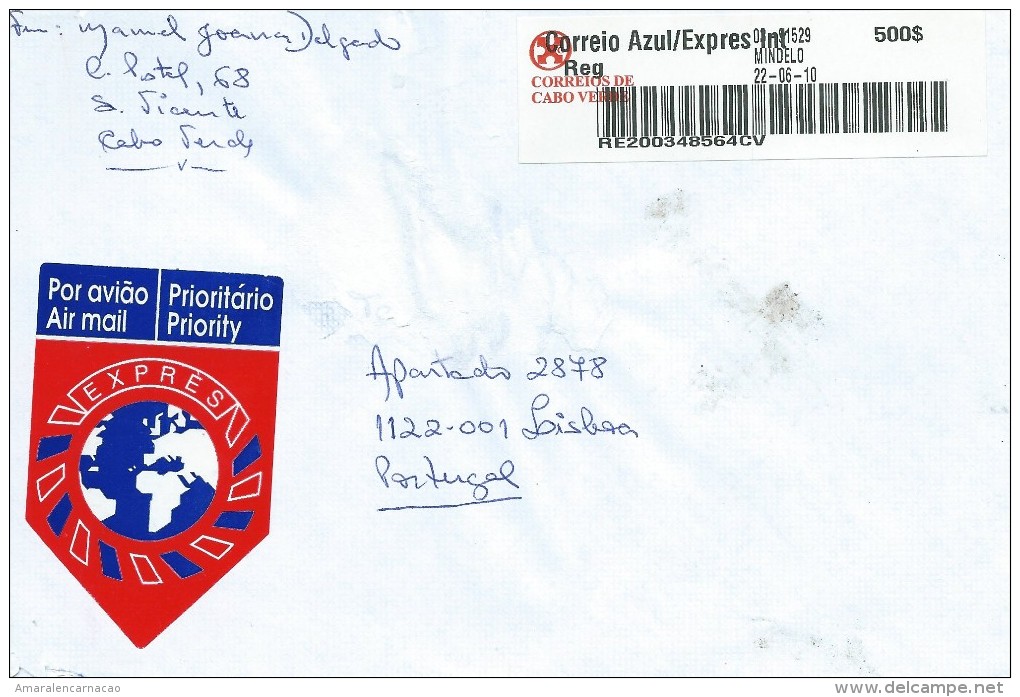 Manuel Joana Delgado
C. Postel, 68
S. Vicente
Cabo Verde
Correio Azul/Expres Int
Reg
CORREIOS DE
CABO VERDE
MINDELO
22-06-10
500$
RE200348564CV
Por avião
Air mail
Prioritário
Priority
EXPRÈS
Apartado 2878
1122-001 Lisboa
Portugal
Amaralencarnacao
www.delcampe.net